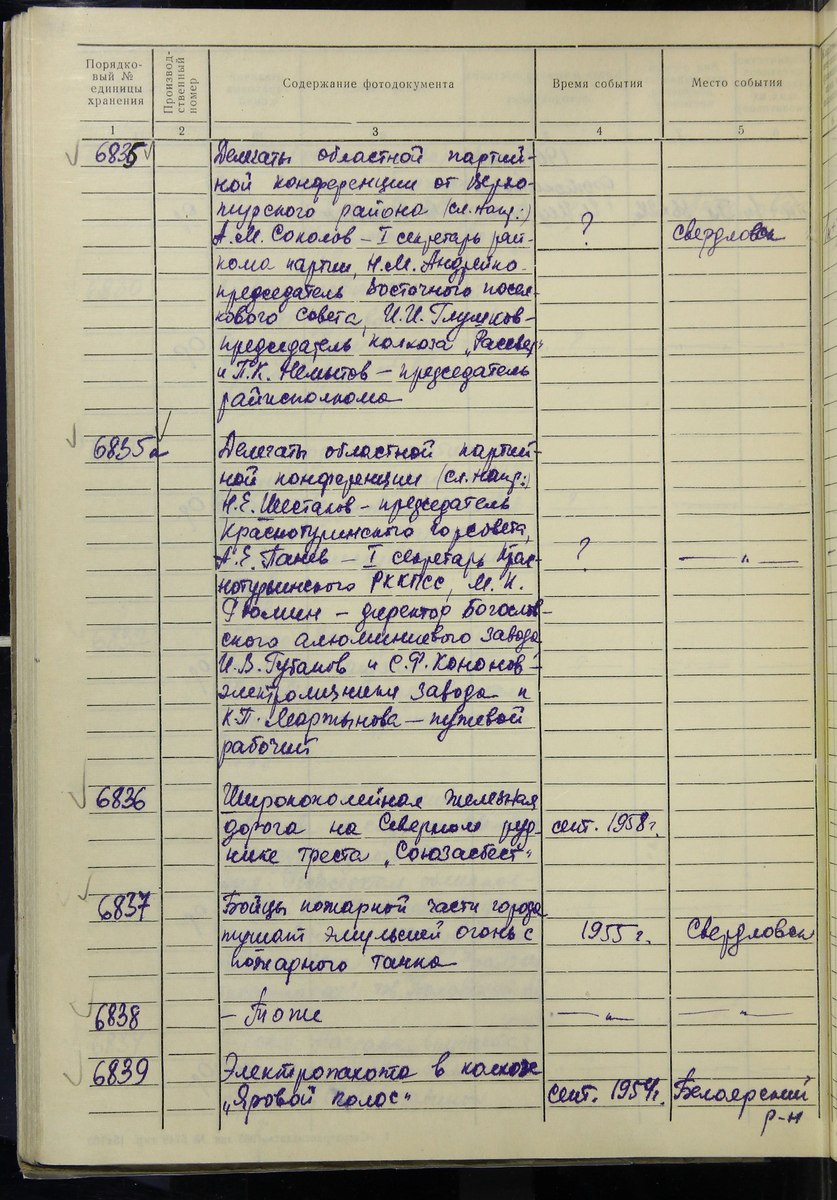 Порядко-
вый №
единицы
хранения
Производ-
ственный
номер
Содержание фотодокумента
Время события
Место события
1 2 3 4 5
6835 Делегаты областной партий-
ной конференции от Верхо-
турского района (сл. напр.:)
А.М. Соколов – I секретарь рай- ? Свердловск
кома партии, Н.М. Андрейко-
председатель Восточного посел-
кового совета, И.И. Глушков-
председатель колхоза „Рассвет"
и П.К. Немытов – председатель
райисполкома
6835а Делегаты областной партий-
ной конференции (сл. напр.:)
Н.Е. Шесталов – председатель
Краснотурьинского горсовета,
А.Е. Панев – I секретарь Крас- ? — „ —
нотурьинского РККПСС, М.Н.
Фомин – директор Богослов-
ского алюминиевого завода
И.В. Губанов и С.Ф. Кононов-
электролизники завода и
К.П. Мартынова – путевой
рабочий
6836 Ширококолейная железная
дорога на Северном руд- сент. 1958 г.
нике треста „Союзасбест"
6837 Бойцы пожарной части города
тушат эмульсией огонь с 1955 г. Свердловск
пожарного танка
6838 – Тоже — „ — — „ —
6839 Электропахота в колхозе
„Яровой колос" сент. 1954г. Белоярский
р-н